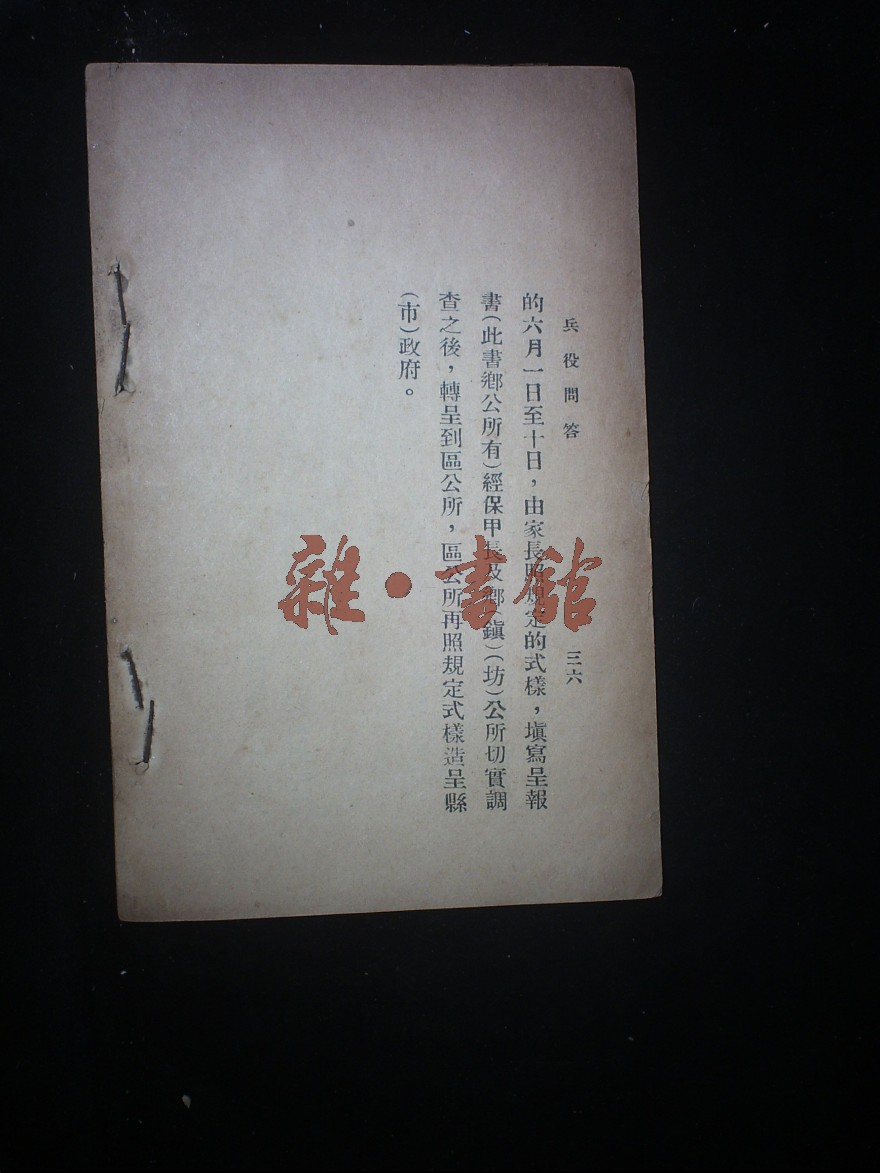 兵役問答 三六
的六月一日至十日，由家長照規定的式樣，塡寫呈報
書(此書鄕公所有)經保甲長及鄕(鎭)(坊)公所切實調
查之後，轉呈到區公所，區公所再照規定式樣造呈縣
(市)政府。
雜·書館